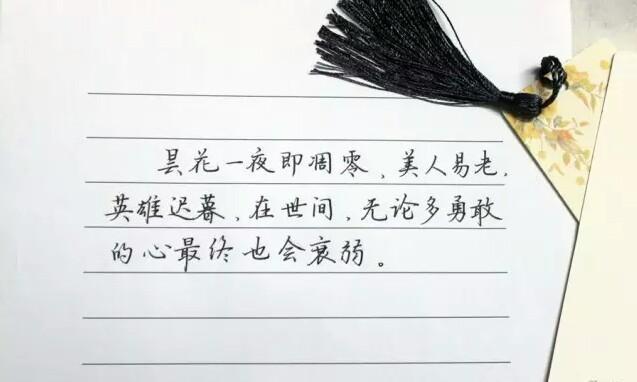 昙花一夜即凋零、美人易老、
英雄迟暮、在世间、无论多勇敢
的心最终也会衰弱。